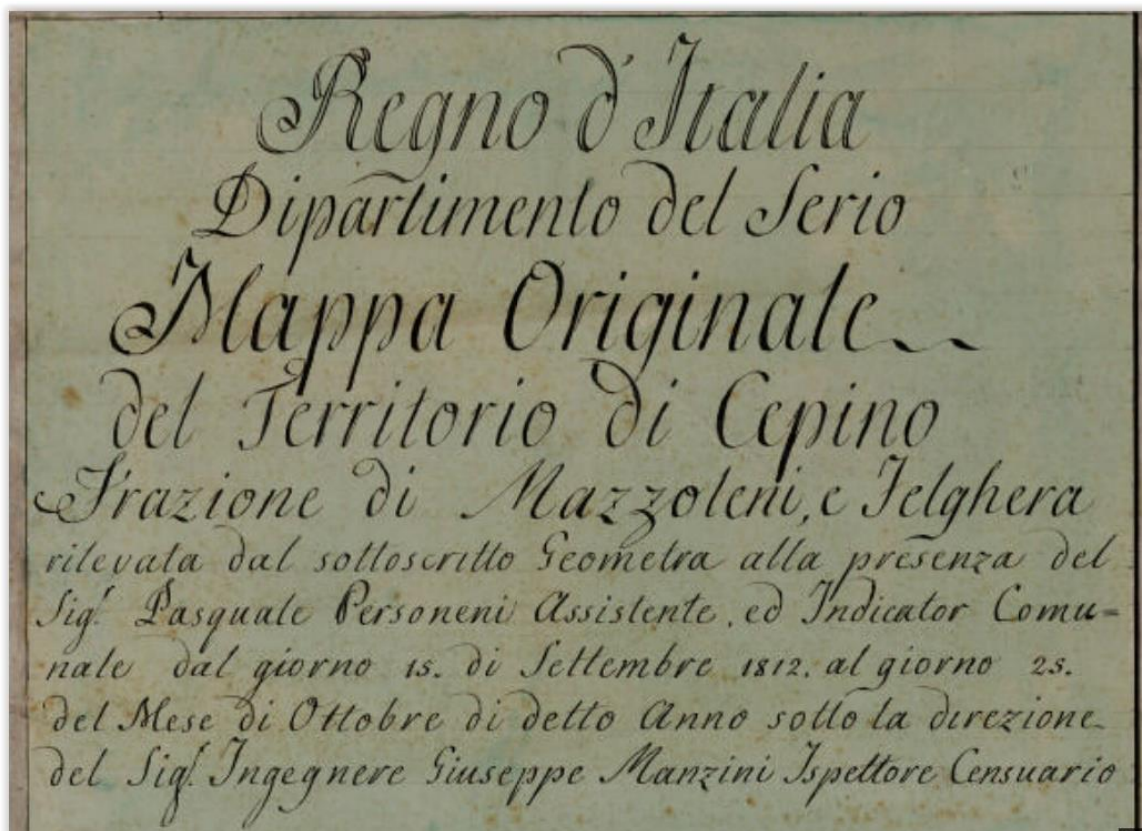 Regno d'Italia
Dipartimento del Serio
Mappa Originale
del Territorio di Cepino
Frazione di Mazzoleni, e Felghera
rilevata dal sottoscritto Geometra alla presenza del
Sig.r Pasquale Personeni Assistente, ed Indicator Comu=
nale dal giorno 15. di Settembre 1812. al giorno 25.
del Mese di Ottobre di detto Anno sotto la direzione
del Sig.r Ingegnere Giuseppe Manzini Ispettore Censuario